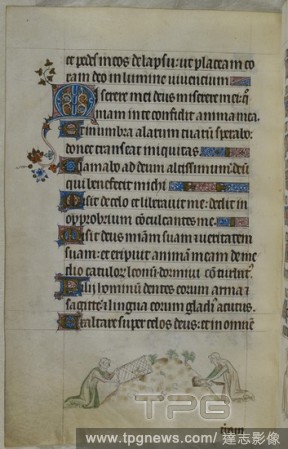 et pedes meos de lapsu: ut placeam co
ram deo in lumine viventium
Miserere mei deus miserere mei: q
niam in te confidit anima mea
Et in umbra alarum tuarū sperabo:
donec transeat iniquitas
Clamabo ad deum altissimum: deū
qui benefecit michi
Misit de celo et liberavit me: dedit in
opprobrium cōculcantes me
Misit deus miām suam et veritatem
suam: et eripuit animam meam de me
dio catulor leonū dormivi cōturbat
Filij hominū dentes eorum arma et
sagitte et lingua eorum gladi acutus.
Exaltare super celos deus: et in omnē
TPG
www.tpgnews.com/達志影像